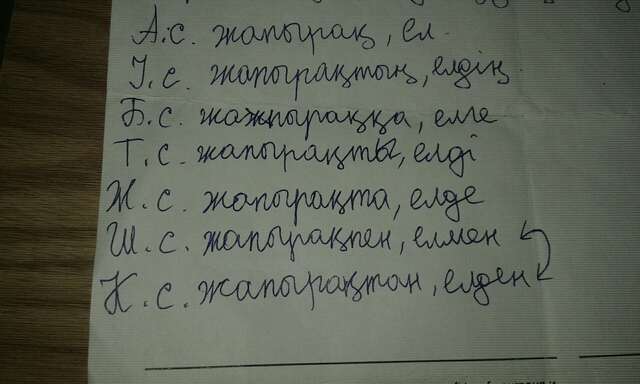 А.с. жапырақ, ел.
І.с. жапырақтың, елдің.
Б.с. жажпыраққа, елге
Т.с. жапырақты, елді
Ж.с. жапырақта, елде
Ш.с. жапырақпен, елмен
К.с. жапырақтан, елден